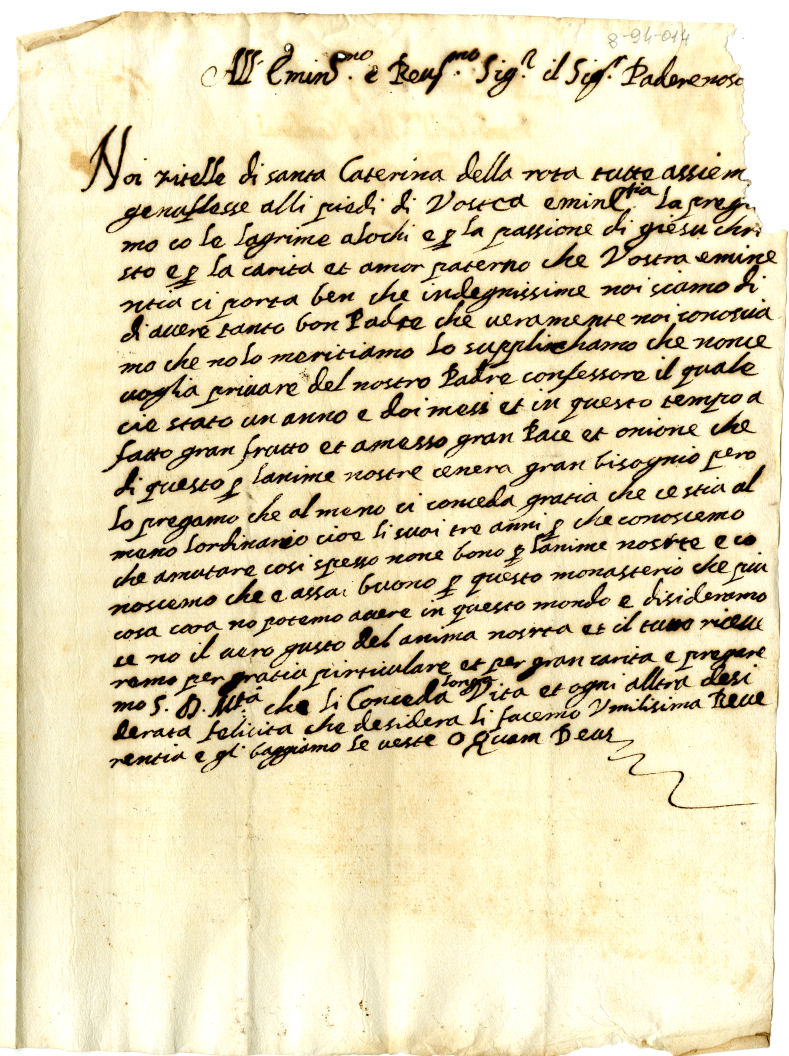 8-94-014
All Emins.mo e Reus.mo Sig.r il Sig.r Paderenos
Noi zitelle di santa Caterina della rota tutte assiem
genuflesse alli piedi di Vostra emin.tia la preg
mo co le lagrime alochi e p la passione di giesu chri
sto e p la carita et amor paterno che Vostra emine
ntia ci porta ben che indegnissime noi siamo di
di avere tanto bon Padre che veramente noi conoscia
mo che no lo meritiamo lo supplichamo che nonce
voglia privare del nostro Padre confessore il quale
cie stato un anno e doi mesi et in questo tempo a
fatto gran frutto et amesso gran Pace et onione che
di questo p lanime nostre cenera gran bisognio pero
lo pregamo che al meno ci conceda gratia che ce stia al
meno lordinario cioe li suoi tre anni p che conoscemo
che amutare cosi spesso none bono p lanime nostre e co
noscemo che e assai buono p questo monasterio che piu
cosa cara no potemo avere in questo mondo e disideramo
se no il vero gusto del anima nostra et il tutto riceve
remo per gratia pirticulare et per gran carita e pregare
mo S. D. M.ta che li Conceda longa Vita et ogni alltra desi
derata felicita che desidera li facemo Vmilisima Reve
rentia e gli baggiamo le veste O Quam Deus